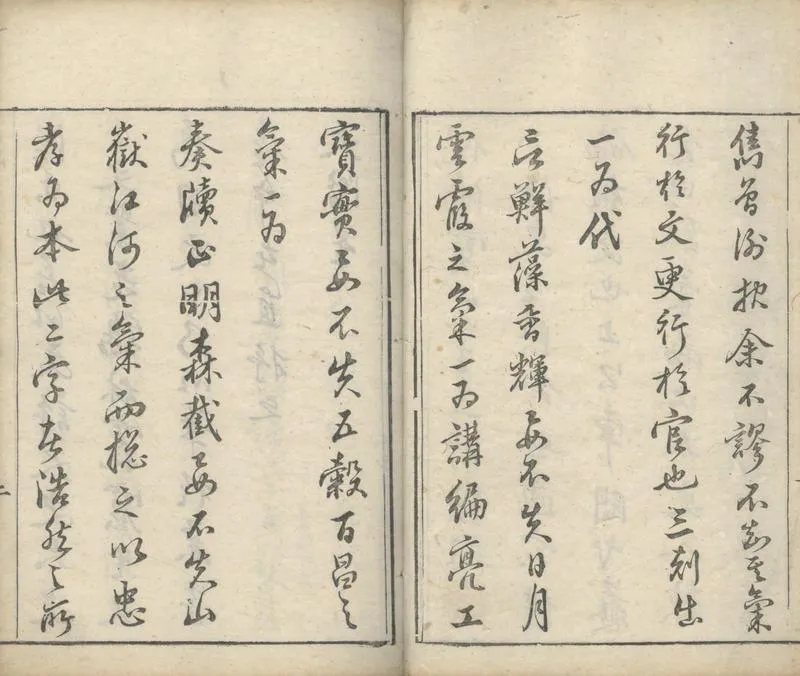 雋曾湔於余不謬不知其氣
行於文更行於官也三刻出
一為代
言鮮藻香輝要不失日月
雲霞之氣一為講編亮工
寶實要不失五穀百昌之
氣一為
奏牘正明森截要不失山
嶽江河之氣而總之以忠
孝為本此二字在浩然之所